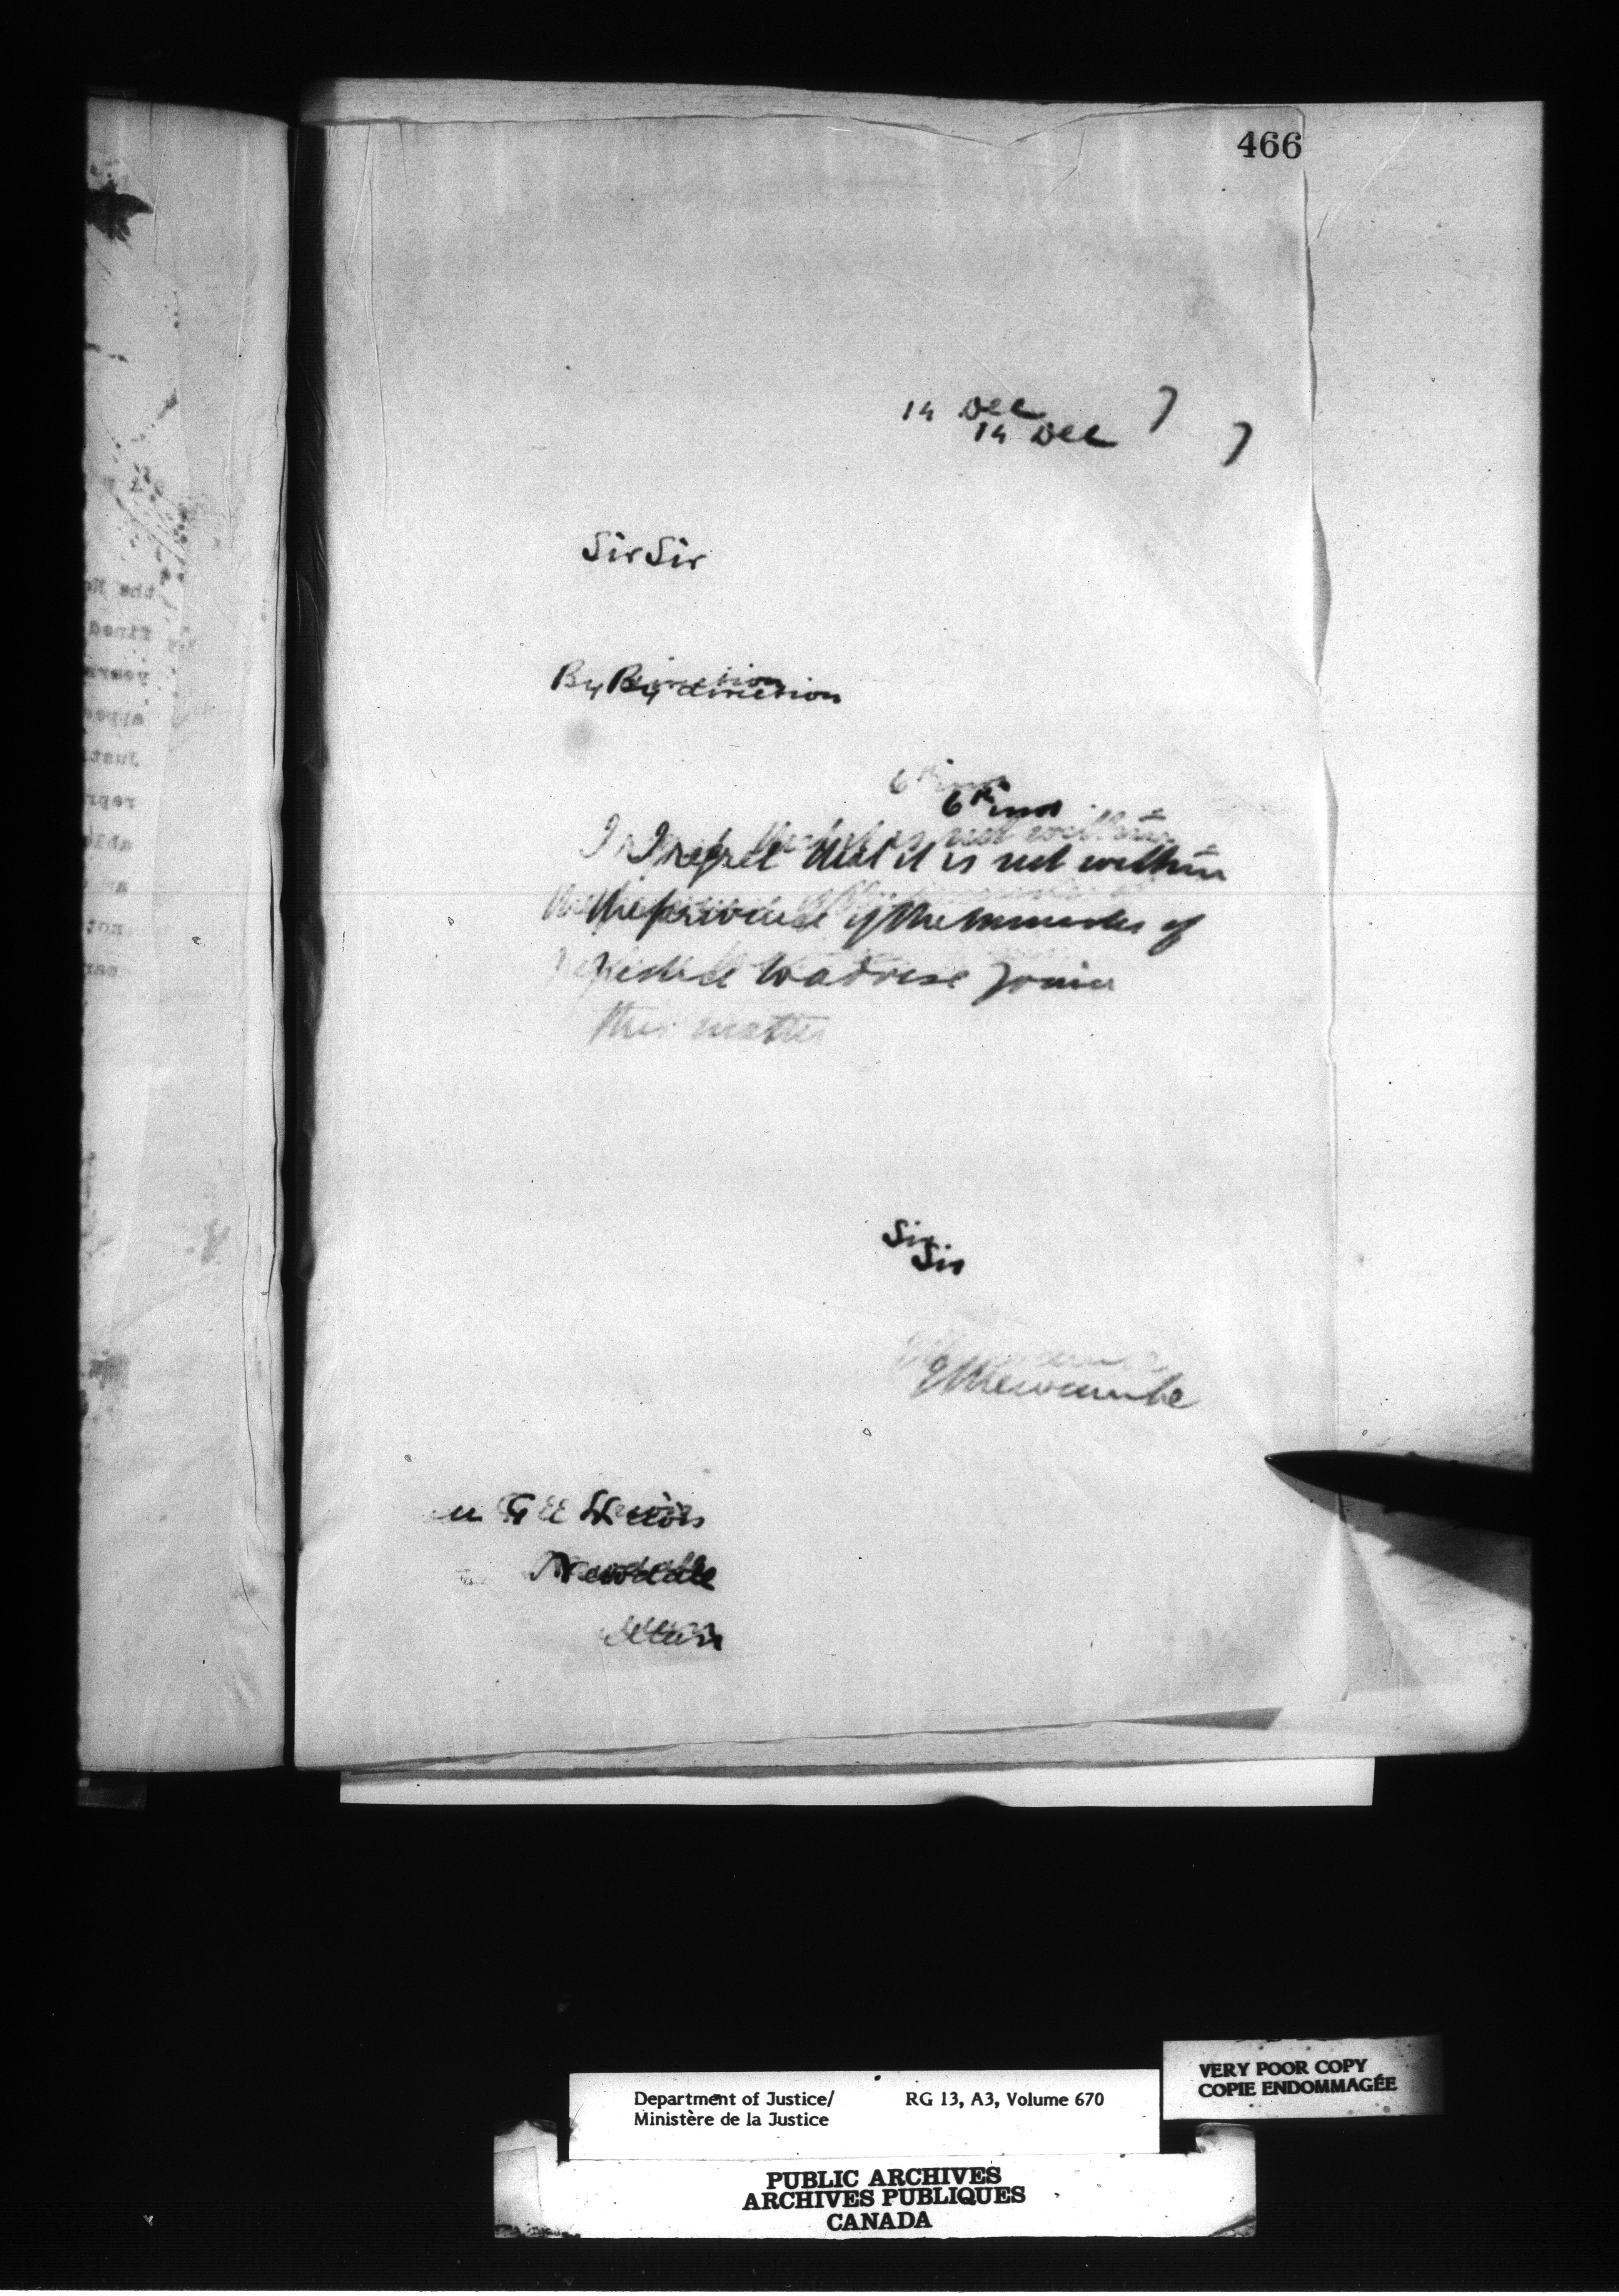 466
14 Dec 7
14 Dec 7
Sir Sir
By direction
By direction
6th inst
6th inst
I regret that it is not within
the province of the Minister of
Justice to advise you in
this matter
Sir
Sir
ELNewcombe
G E
Newdale
Man
Department of Justice/ RG 13, A3, Volume 670
Ministère de la Justice
VERY POOR COPY
COPIE ENDOMMAGÉE
PUBLIC ARCHIVES
ARCHIVES PUBLIQUES
CANADA